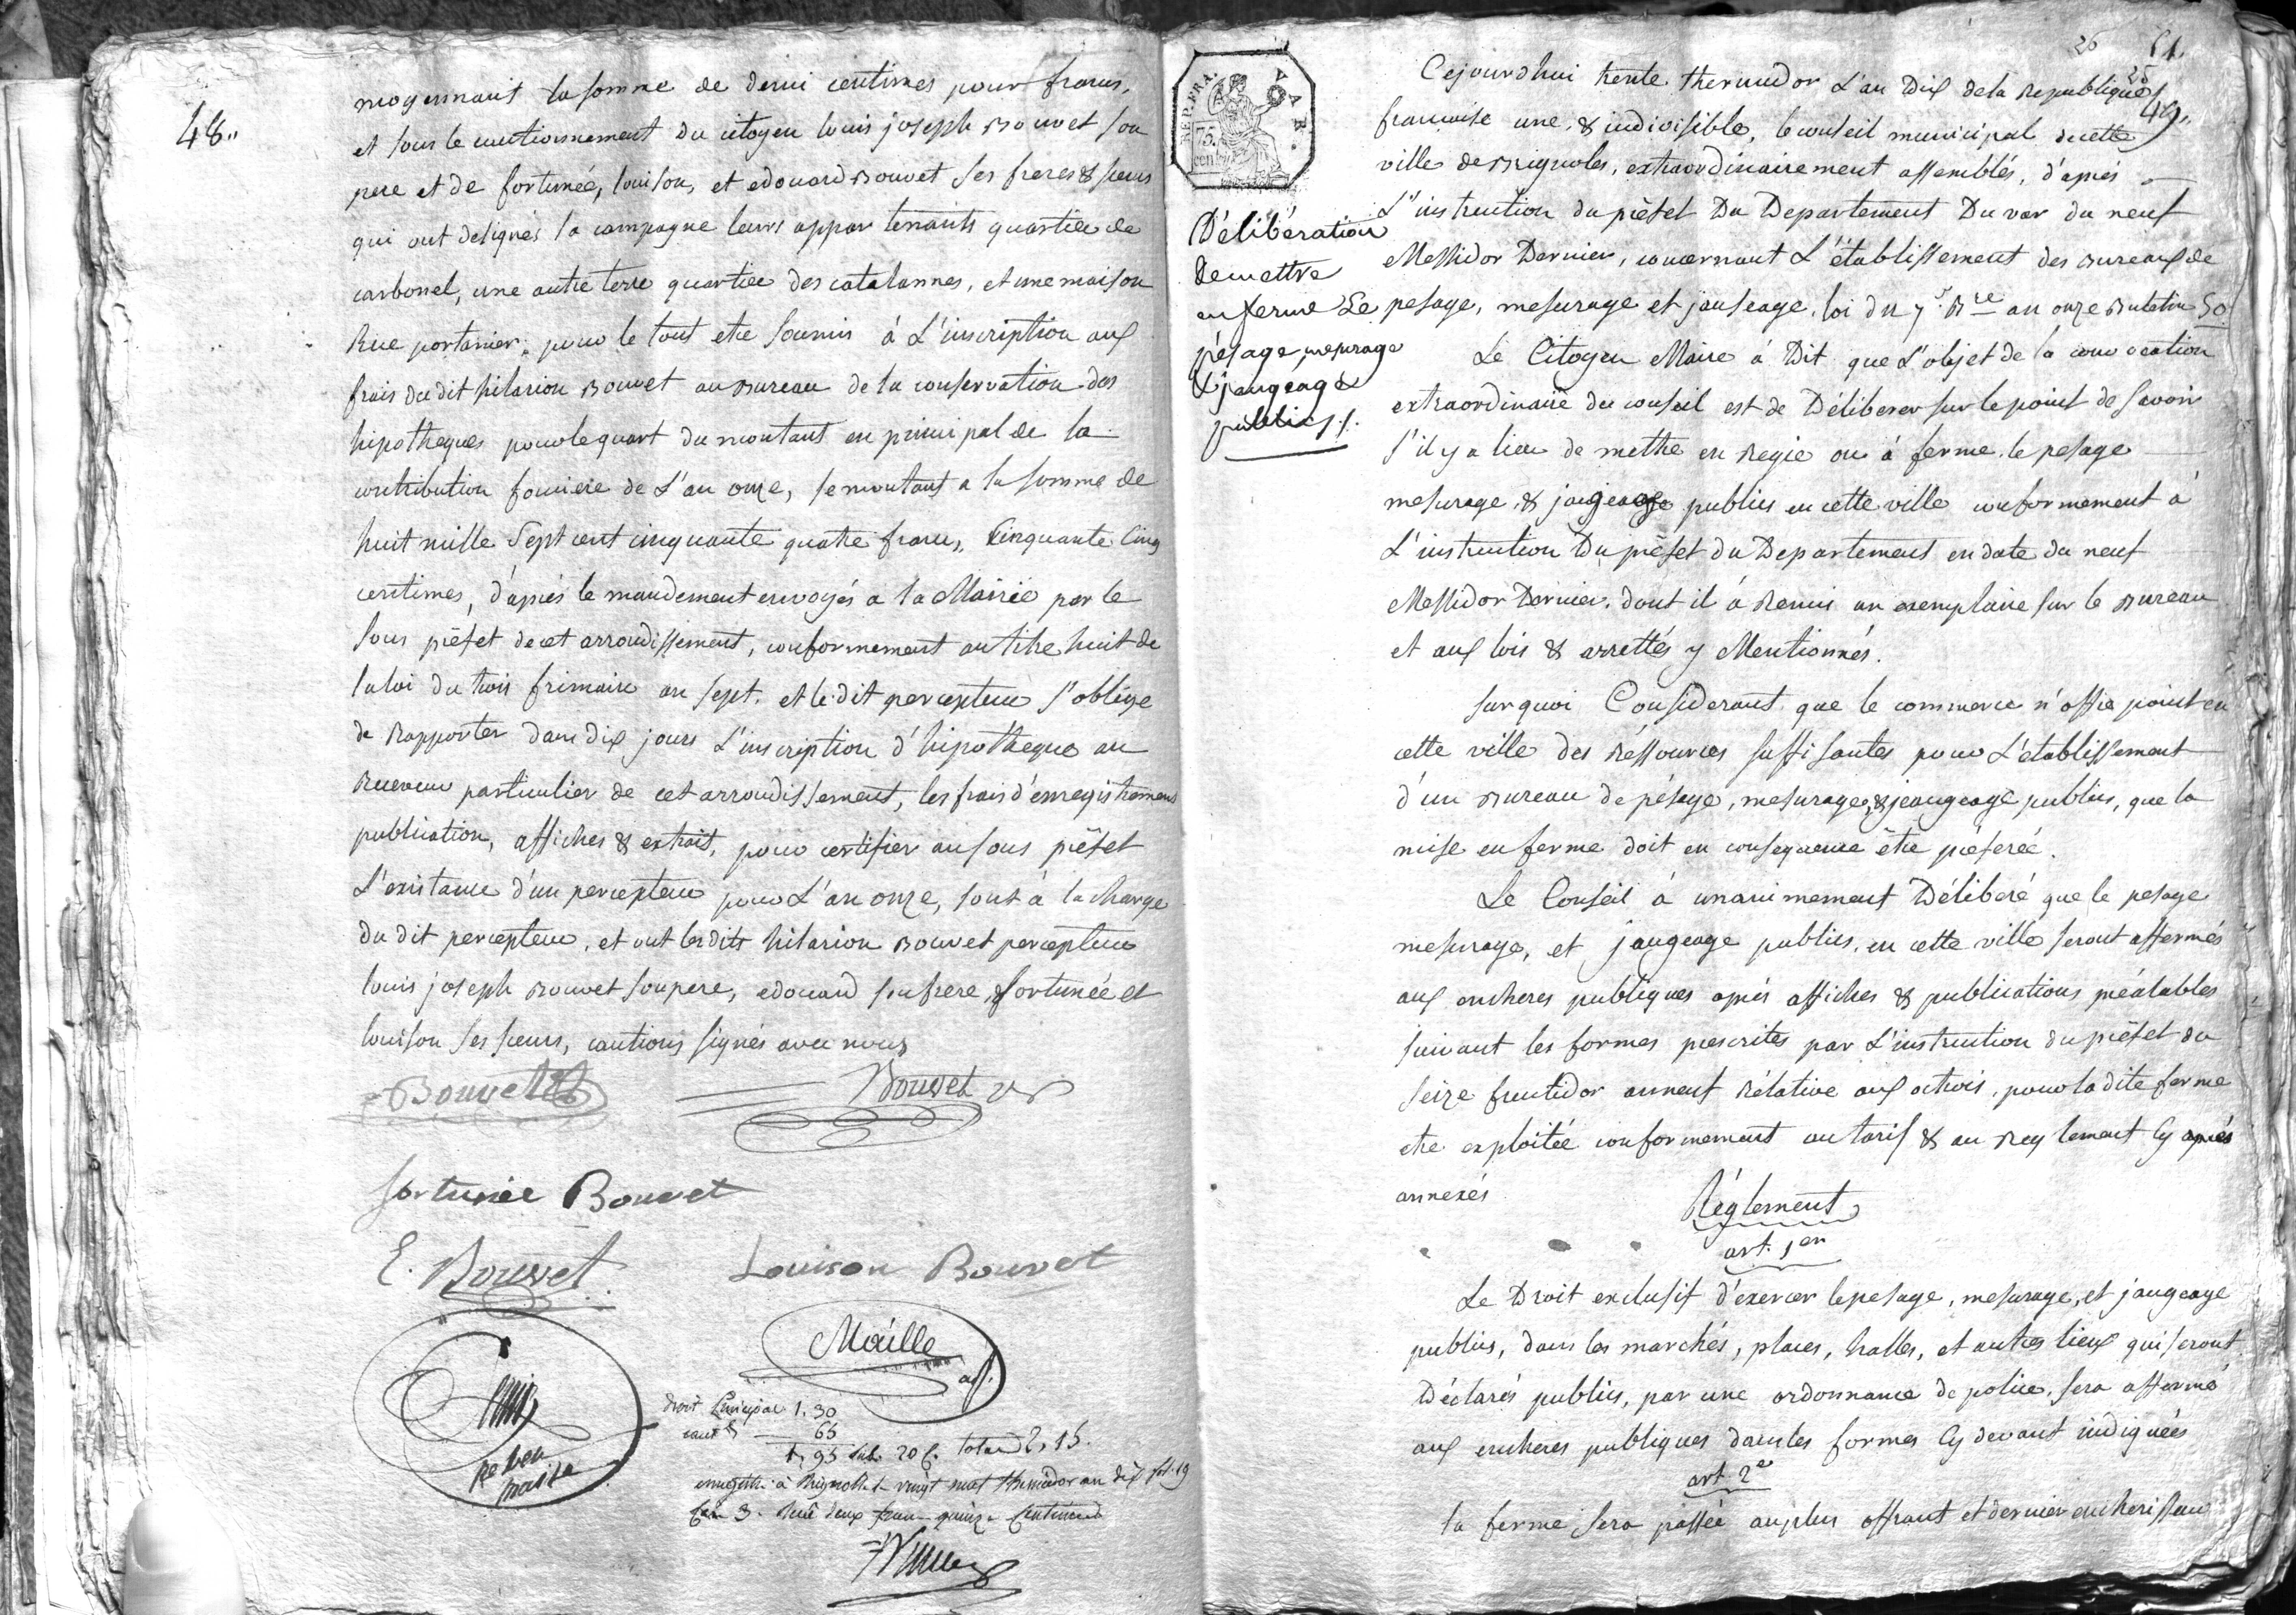 48"
moyennant la somme de demi centimes pour francs,
et sous le cautionnement du citoyen louis joseph Bouvet son
pere et de fortunée, louison, et edouard Bouvet ses freres & sœurs
qui ont designés la campagne leurs appartenants quartier de
carbonel, une autre terre quartier des catalannes, et une maison
Rue portanier; pour le tout etre soumis à L'inscription aux
frais du dit hilarion Bouvet au Bureau de la conservation des
hipotheques pour le quart du montant en principal de la
contribution fonciere de L'an onze, se montant a la somme de
huit mille Sept cent cinquante quatre francs, Cinquante Cinq
centimes, d'après le mandement envoyés a la Mairie par le
sous préfet de cet arrondissement, conformement au titre huit de
la loi du trois frimaire an sept. et le dit percepteur s'oblige
de Rapporter dans dix jours L'inscription d'hipotheque au
Receveur particulier de cet arrondissement, les frais d'enregistrement
publication, affiches & extrait, pour certifier au sous préfet
L'existance d'un percepteur pour L'an onze, sont à la charge
du dit percepteur, et ont les dits hilarion Bouvet percepteur
louis joseph Bouvet son pere, edouard son frere, & fortunée et
louison ses sœurs, cautions signés avec nous
Bouvet
Bouvet
fortunée Bouvet
E. Bouvet
Louison Bouvet
Maille
adj.
maire
droit Principal 1.30
caut.t 65
1,95 sub. 20 c. total 2,15.
enregistré à Brignolle le vingt neuf thermidor an dix fol. 19
Case 3. Reçu deux francs quinze centimes
26 61.
25
49.
REP. FRA.
VAR.
75.
cent
Cejourdhui trente thermidor L'an Dix de la Republique
francaise une & indivisible, le conseil municipal de cette
ville de Brignoles, extraordinairement assemblés, d'après
L'instruction du préfet Du Departement Du var du neuf
Messidor Dernier, concernant L'établissement des Bureaux de
pesage, mesurage et jauseage. loi du 7 Bre an onze Buletin 50.
Délibération
de mettre
en ferme Le
pésage, mesurage
& jaugeage
publics.
Le Citoyen Maire à Dit que L'objet de la convocation
extraordinaire du conseil est de Déliberer sur le point de savoir
s'il y a lieu de mettre en Regie ou à ferme le pesage
mesurage, & jaugeage publics en cette ville conformement à
L'instruction Du préfet du Departement en date du neuf
Messidor Dernier. dont il à Remis un exemplaire sur le Bureau
et aux lois & arrettés y Mentionnés.
sur quoi Considerant que le commerce n'offre point en
cette ville des Réssources suffisantes pour L'établissement
d'un Bureau de pésage, mesurage, & jeaugeage publics, que la
mise en ferme doit en consequence être préferée.
Le Conseil à unanimement Déliberé que le pesage
mesurage, et jaugeage publics, en cette ville seront affermés
aux encheres publiques après affiches & publications préalables
suivant les formes prescrites par L'instruction du préfet du
seize fructidor an neuf Rélative aux octrois, pour la dite ferme
etre exploitée conformement au tarif & au Reglement Cy après
annexés
Réglement
art. 1er
Le Droit exclusif d'éxercer le pesage, mesurage, et jaugeage
publics, dans les marchés, places, halles, et autres lieux qui seront
Déclarés publics, par une ordonnance de police, sera affermé
aux encheres publiques dans les formes Cy devant indiquées
art. 2e
la ferme sera passée au plus offrant et dernier encherisseur